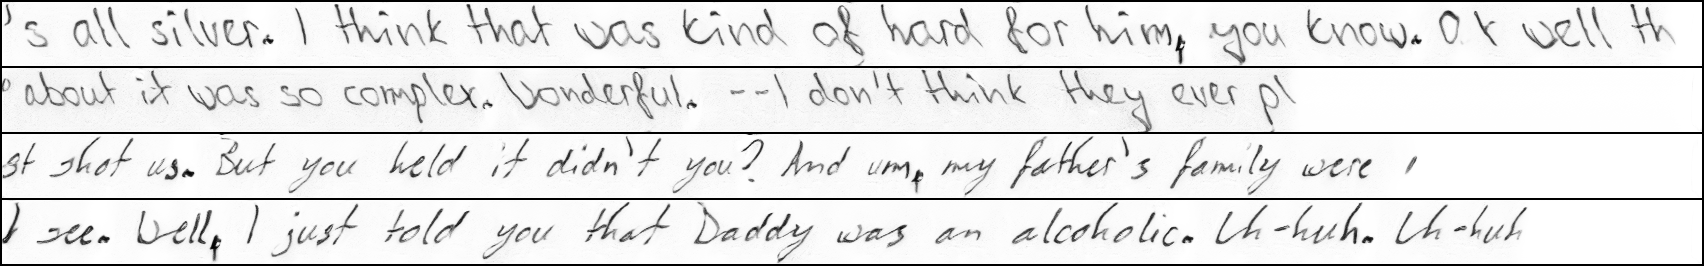 's all silver. I think that was kind of hard for him, you know. Or well th
about it was so complex. Wonderful. --I don't think they ever pl
st shot us. But you held it didn't you? And um, my father's family were
I see. Well, I just told you that Daddy was an alcoholic. Uh-huh. Uh-huh